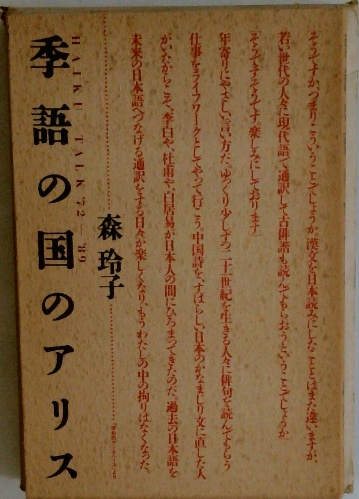 そうですか、つまりこういうことでしょうか。漢文を日本読みにしたこととはまた違いますが、
若い世代の人々に現代語で通訳して古俳諧も読んでもらおうということでしょうか。
そうですそうです。楽しみにしております。
年寄りにやさしい言い方だ。ゆっくり少しずつ二十一世紀を生きる人々に俳句を読んでもらう
仕事をライフワークとしてやって行こう。中国詩を、すばらしい日本のかなまじり文に直した人
がいたからこそ、李白や、杜甫や、白居易が日本人の間にひろまってきたのだ。過去の日本語を
未来の日本語へつなげる通訳をする日々が楽しくなり、もうわたしの中の拘りはなくなった。
森 玲子
HAIKU TALK '72—'89
季語の国のアリス